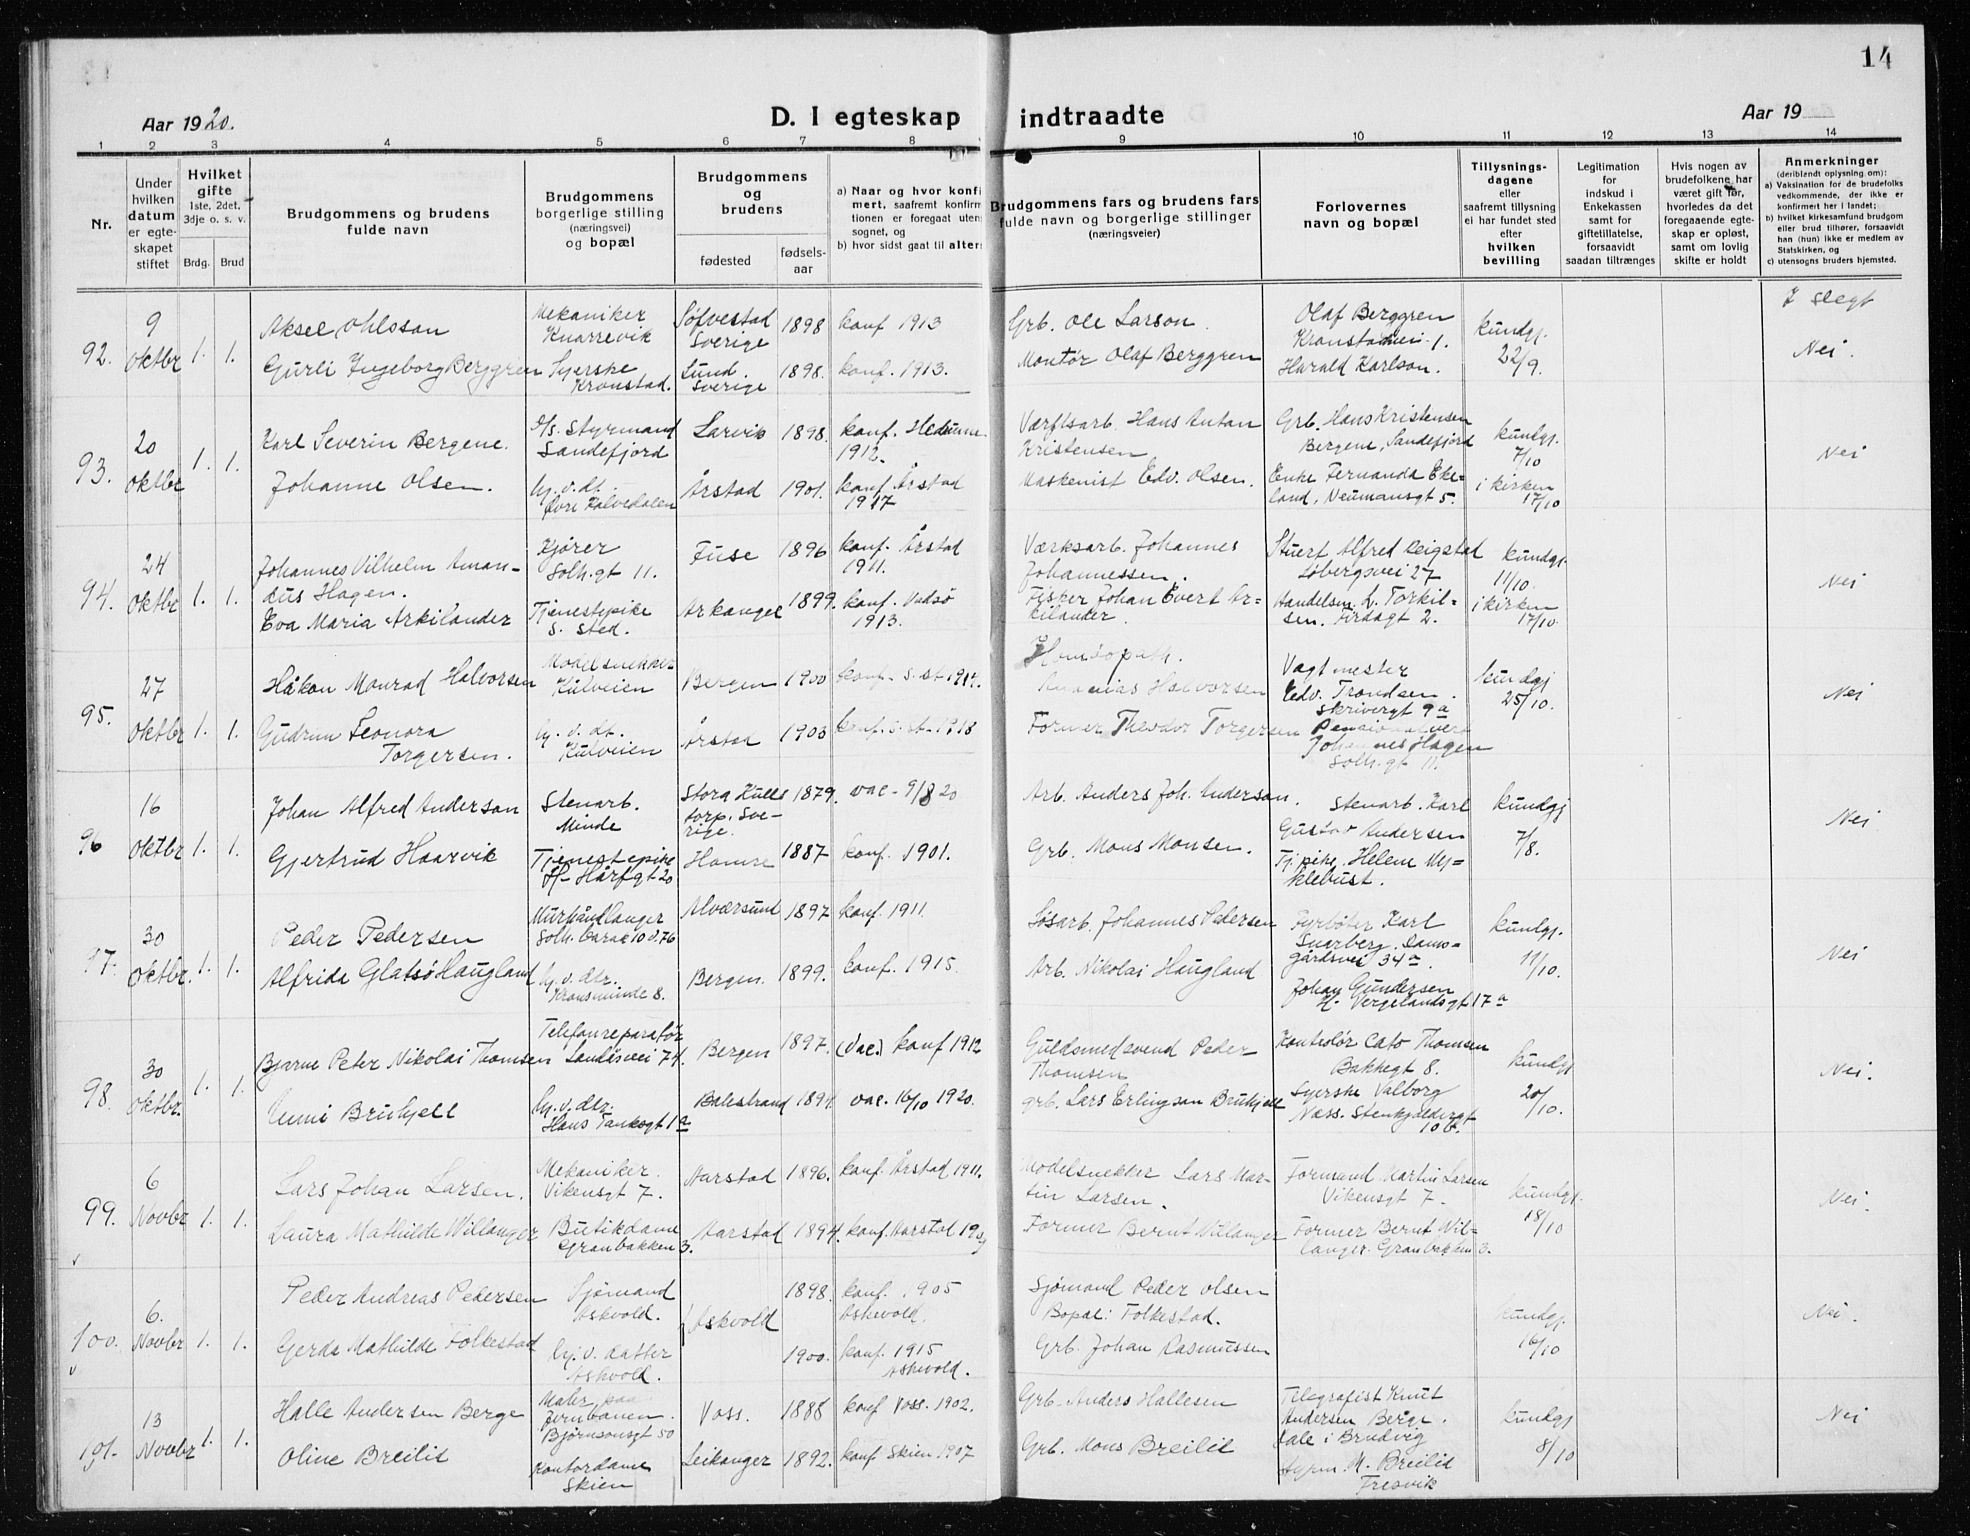 14
Aar 1920.
D. I egteskap indtraadte
Aar 19
1 2 3 4 5 6 7 8 9 10 11 12 13 14
Nr.
Under hvilken datum er egteskapet stiftet
Hvilket gifte
1ste, 2det, 3dje o. s. v.
Brdg. Brud
Brudgommens og brudens fulde navn
Brudgommens borgerlige stilling (næringsvei) og bopæl
Brudgommens og brudens
fødested
fødsels-aar
a) Naar og hvor konfi
mert, saafremt konfirm
tionen er foregaat uten
sognet, og
b) hvor sidst gaat til alters
Brudgommens fars og brudens fars
fulde navn og borgerlige stillinger
(næringsveier)
Forlovernes
navn og bopæl
Tillysnings-
dagene
eller
saafremt tillysning
ei har fundet sted
efter
hvilken
bevilling
Legitimation
for
indskud i
Enkekassen
samt for
giftetillatelse,
forsaavidt
saadan tiltrænges
Hvis nogen av
brudefolkene har
været gift før,
hvorledes da det
foregaaende egte-
skap er opløst,
samt om lovlig
skifte er holdt
Anmerkninger
(deriblandt oplysning om):
a) Vaksination for de brudefolks
vedkommende, der ikke er
konfirmert her i landet;
b) hvilket kirkesamfund brudgom
eller brud tilhører, forsaavidt
han (hun) ikke er medlem av
Statskirken, og
c) utensogns bruders hjemsted.
I slegt
92. 9 Oktbr 1. 1.
Aksel Ohlsson
Mekaniker Knarrevik
Söfvestad Sverige 1898 konf 1913
Grb. Ole Larson.
Olaf Berggren
Kronstadvei 1.
kundgj. 22/9.
Nei.
Gurli Ingeborg Berggren
Syerske Kronstad.
Lund. Sverige 1898. konf. 1913.
Montør Olaf Berggren
Harald Karlson.
93. 20 Oktbr 1. 1.
Karl Severin Bergene.
D/s. Styrmand Sandefjord
Larvik 1898. konf. Hedrum 1912.
Værftsarb. Hans Anton Kristensen
Grb. Hans Kristensen Bergene, Sandefjord
kundgj. 7/10
Nei
Johanne Olsen.
hj. v. dt. Øvre Kalvedalen
Årstad 1901. konf Årstad 1917
Maskenist Edv. Olsen.
Enke Fernanda Eke-
land, Neumansgt 5.
i kirken 17/10
94. 24 Oktbr 1. 1.
Johannes Vilhelm Aman-
dus Hagen.
Kjører Solh.gt 11.
Fuse 1896 konf. Årstad 1911.
Værksarb. Johannes Johannessen.
Stuert Alfred Reigstad
Løbergsvei 27
kundgj. 11/10.
Nei
Eva Maria Arkilander
Tjenestepike s. sted.
Arkangel 1899. konf. Vadsö 1913.
Fisker Johan Evert Ar-
kilander.
Handelsm. L. Torkil-
sen. Firdagt 2.
i kirken 17/10.
95. 27 Oktbr 1. 1.
Håkon Monrad Halvorsen
Modelsnekker Kulveien
Bergen 1900 konf. s. st 1914.
Homöopath.
Ananias Halvorsen
Vagtmester
Edv. Trondsen.
Skrivergt 9a
kundgj 25/10.
Nei
Gudrun Leonora Torgersen.
hj. v. dt. Kulveien
Årstad 1903 konf. s. st. 1918
Former Theodor Torgersen
Johannes Hagen
Solh.gt 11.
96 16 Oktbr 1. 1.
Johan Alfred Anderson
Stenarb. Minde
Stora Kulls torp. Sve-
rige. 1879. vac. 9/8 20
Arb. Anders Joh. Anderson.
Stenarb. Karl
Gustav Andersen
kundgj 7/8.
Nei
Gjertrud Haarvik
Tjenestepike H. Hårfgt 20
Hamre 1887 konf. 1901.
Grb. Mons Monsen.
Tj.pike. Helene My-
klebust.
97. 30 Oktbr. 1. 1.
Peder Pedersen
Murhåndlanger
Solh. barak 10 d. 76
Alværsund 1897 konf. 1911.
Løsarb. Johannes Pedersen
Fyrbøter Karl
Snarberg. Dams-
gårdsvei 34a.
kundgj. 11/10.
Nei
Alfrida Glatsö Haugland
hj. v. dtr. Kronsminde 8.
Bergen. 1899. konf. 1915.
Arb. Nikolai Haugland
Johan Gundersen
H. Vergelandsgt 17a
98. 30 Oktbr. 1. 1.
Bjarne Peter Nikolai Thomsen
Telefonreparatör
Landåsvei 74.
Bergen 1897. (vac.) konf 1912
Guldsmedsvend Peder Thomsen
Kontorlör Cato Thomsen
Bakkegt 8.
kundgj 20/10.
Nei.
Unni Bruhjell
hj. v. dtr. Hans Tanksgt 1a
Balestrand 1894. vac. 16/10 1920.
grb. Lars Erlingson Bruhjell
Syerske Valborg
Næss. Stenkjeldergt
10 b.
99. 6 Novbr 1. 1.
Lars Johan Larsen.
Mekaniker. Vikensgt 7.
Aarstad 1896. konf. Årstad 1911.
Modelsnekker Lars Mar-
tin Larsen.
Formand Martin Larsen
Vikensgt 7.
kundgj. 18/10
Nei.
Laura Mathilde Willanger
Butikdame Granbakken 3.
Aarstad 1894. konf. Aarstad 1909
Former Bernt Willanger
Former Bernt Wil-
langer. Granbakken 3.
100. 6. Novbr 1. 1.
Peder Andreas Pedersen
Sjømand Askvold.
Askvold 1898. konf. 1905 Askevold.
Sjømand Peder Olsen
Bopæl: Folkestad.
kundgj. 16/10
Nei.
Gerda Mathilde Folkestad
hj. v. datter Askvold.
1900. konf. 1915 Askevold.
Grb. Johan Rasmussen
101. 13 Novbr 1. 1.
Halle Andersen Berge
Maler paa Jernbanen.
Bjørnsonsgt 50
Voss. 1888 konf Voss. 1902.
Grb. Anders Hallesen
Telegrafist Knut
Andersen Berge.
Dale i Brudvig
kundgj 8/10
Nei
Oline Breilid
Kontordame Skien
Leikanger 1892. konf Skien 1907
Grb. Mons Breilid
M. Breilid
Fresvik